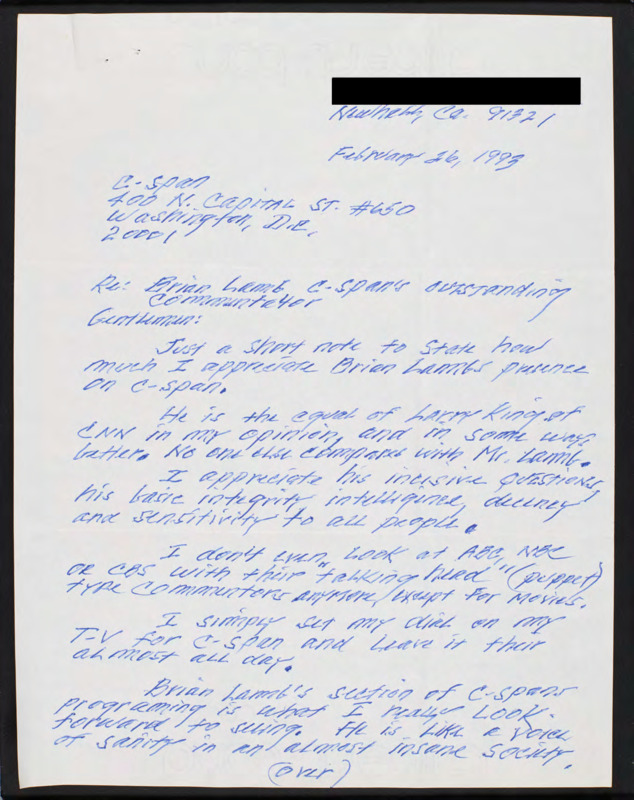 Newhall, Ca. 91321
February 26, 1993
C-Span
400 N. Capital St. #650
Washington, D.C.
20001
Re: Brian Lamb C-Span's outstanding
Communtator
Gentlemen:
Just a short note to state how
much I appreciate Brian Lamb's presence
on C-Span.
He is the equal of Larry King of
CNN in my opinion, and in some ways
better. No one else compares with Mr. Lamb.
I appreciate his incisive questions,
his basic integrity intelligence, decency
and sensitivity to all people.
I don't even look at ABC, NBC
or CBS with their "talking head" (puppet)
type Communters anymore, except for movies.
I simply set my dial on my
T-V for C-Span and leave it their
almost all day.
Brian Lamb's section of C-Spans
programing is what I really look-
forward to seeing. He is like a voice
of sanity in an almost insane society.
(over)